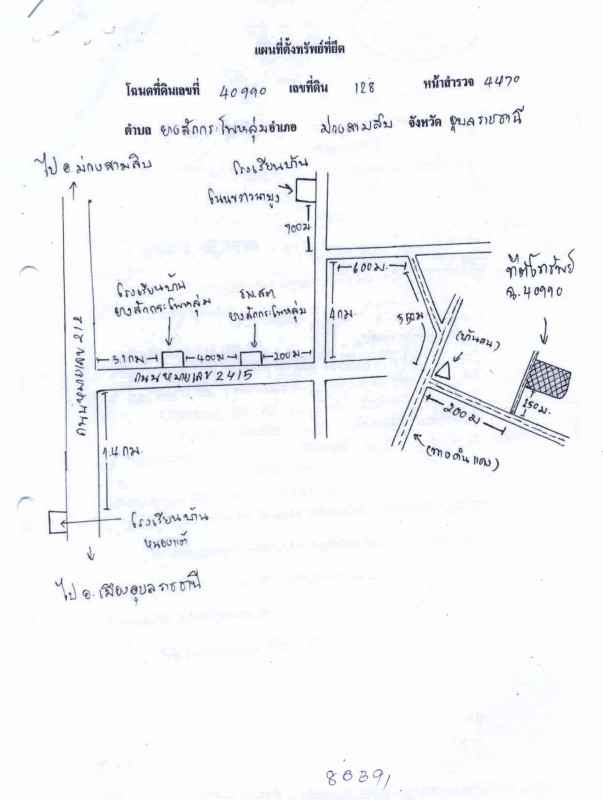 แผนที่ตั้งทรัพย์ที่ยึด
โฉนดที่ดินเลขที่ 40990 เลขที่ดิน 128 หน้าสำรวจ 4470
ตำบล ยางสักกระโพหลุ่ม อำเภอ ม่วงสามสิบ จังหวัด อุบลราชธานี
ไป อ.ม่วงสามสิบ
โรงเรียนบ้าน
900ม.
600ม.
ที่ตั้งทรัพย์
ฉ.40990
โรงเรียนบ้าน
ยางสักกระโพหลุ่ม
รพ.สต
ยางสักกระโพหลุ่ม
4กม.
550ม
ถนนหมายเลข 212
3.1กม
400ม
200ม.
ถนนหมายเลข 2415
150ม.
200ม
(ทางดินแดง)
1.4 กม.
โรงเรียนบ้าน
หนองแต้
ไป อ.เมืองอุบลราชธานี